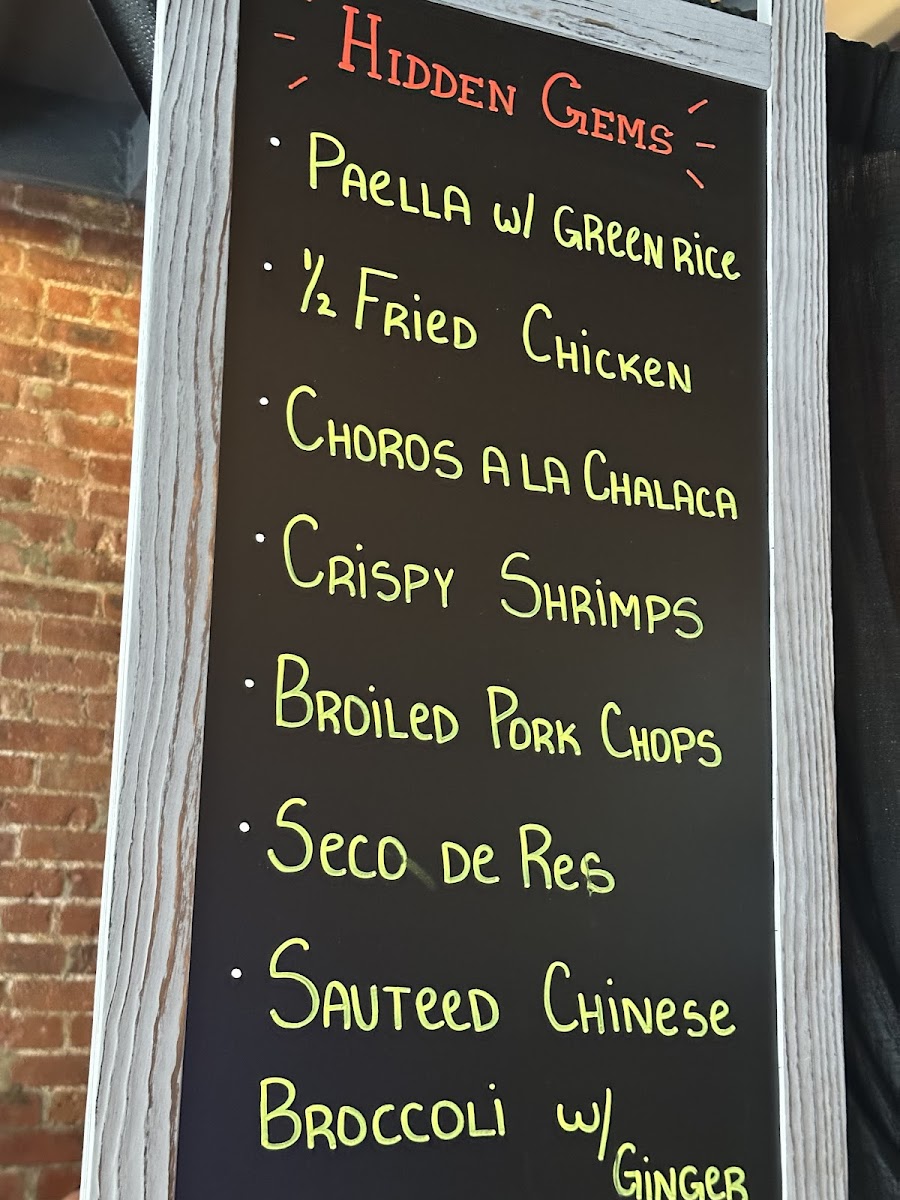 Hidden Gems
• Paella w/ Green Rice
• 1/2 Fried Chicken
• Choros a la Chalaca
• Crispy Shrimps
• Broiled Pork Chops
• Seco de Res
• Sauteed Chinese
Broccoli w/
Ginger